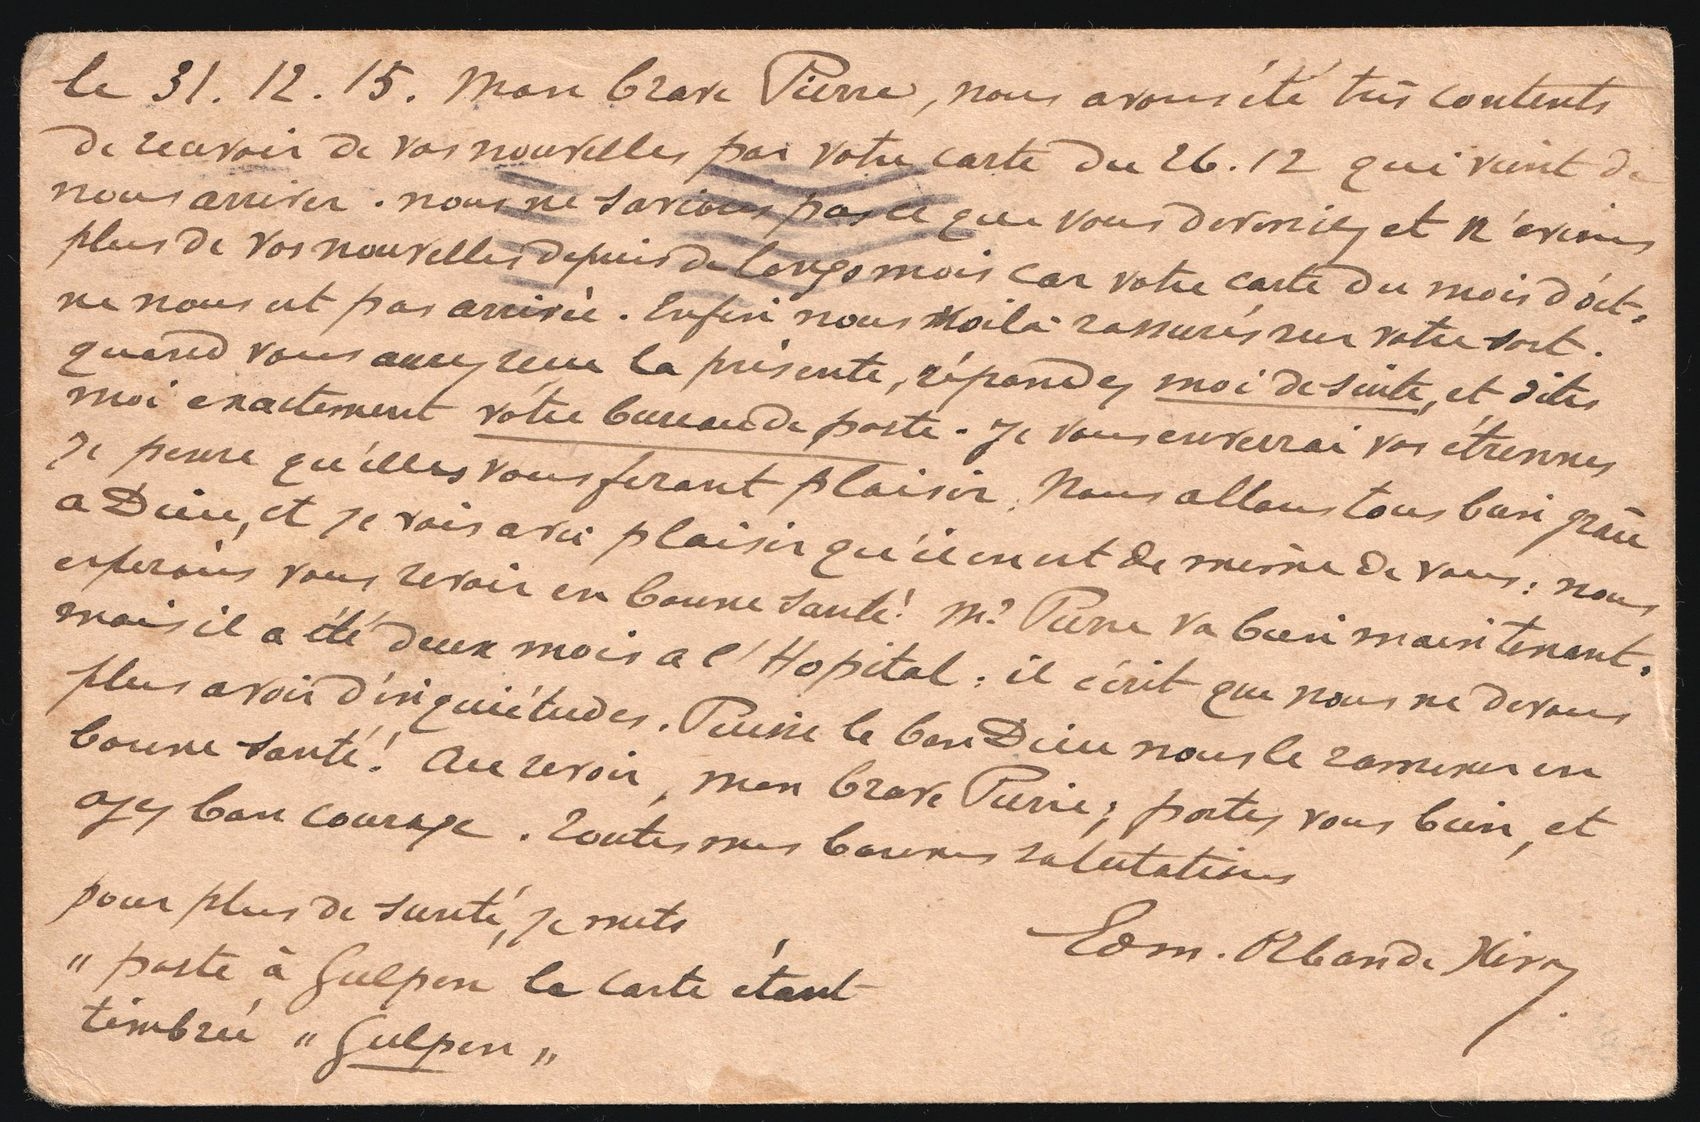 le 31. 12. 15. Mon brave Pierre, nous avons été très contents
de recevoir de vos nouvelles par votre carte du 26.12 qui vient de
nous arriver. nous ne savions pas ce que vous deveniez et n'avions
plus de vos nouvelles depuis de longs mois car votre carte du mois d'oct.
ne nous est pas arrivée. Enfin nous voilà rassurés sur votre sort.
quand vous aurez reçu la présente, répondez moi de suite, et dites
moi exactement vôtre bureau de poste. Je vous enverrai vos étrennes
Je pense qu'elles vous feront plaisir. Nous allons tous bien grâce
a Dieu, et je vois avec plaisir qu'il en est de même de vous: nous
espérons vous revoir en bonne santé! Mr Pierre va bien maintenant.
mais il a été deux mois a l'Hopital: il écrit que nous ne devons
plus avoir d'inquiétudes. Puisse le bon Dieu nous le ramener en
bonne santé! Au revoir, mon brave Pierre; portez vous bien, et
ayez bon courage. Toutes mes bonnes salutations
pour plus de sureté, je mets
" poste à Gulpen la carte étant
timbrée " Gulpen "
Edm. Orban de Xivry